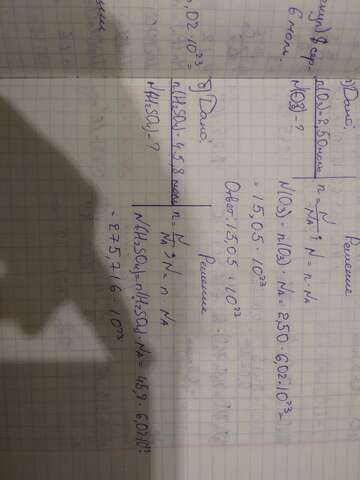 6 моль.
Дано:
n(O3)=2,50 моль
N(O3)-?
Решение
n = N/NA ; N = n · NA
N(O3) = n(O3) · NA = 2,50 · 6,02 · 10²³ =
= 15,05 · 10²³
Ответ: 15,05 · 10²³
,02 · 10²³ =
в) Дано:
n(H2SO4)=45,8 моль
N(H2SO4)-?
Решение
n = N/NA ; N = n · NA
N(H2SO4)=n(H2SO4) · NA = 45,8 · 6,02 · 10²³
= 275,716 · 10²³